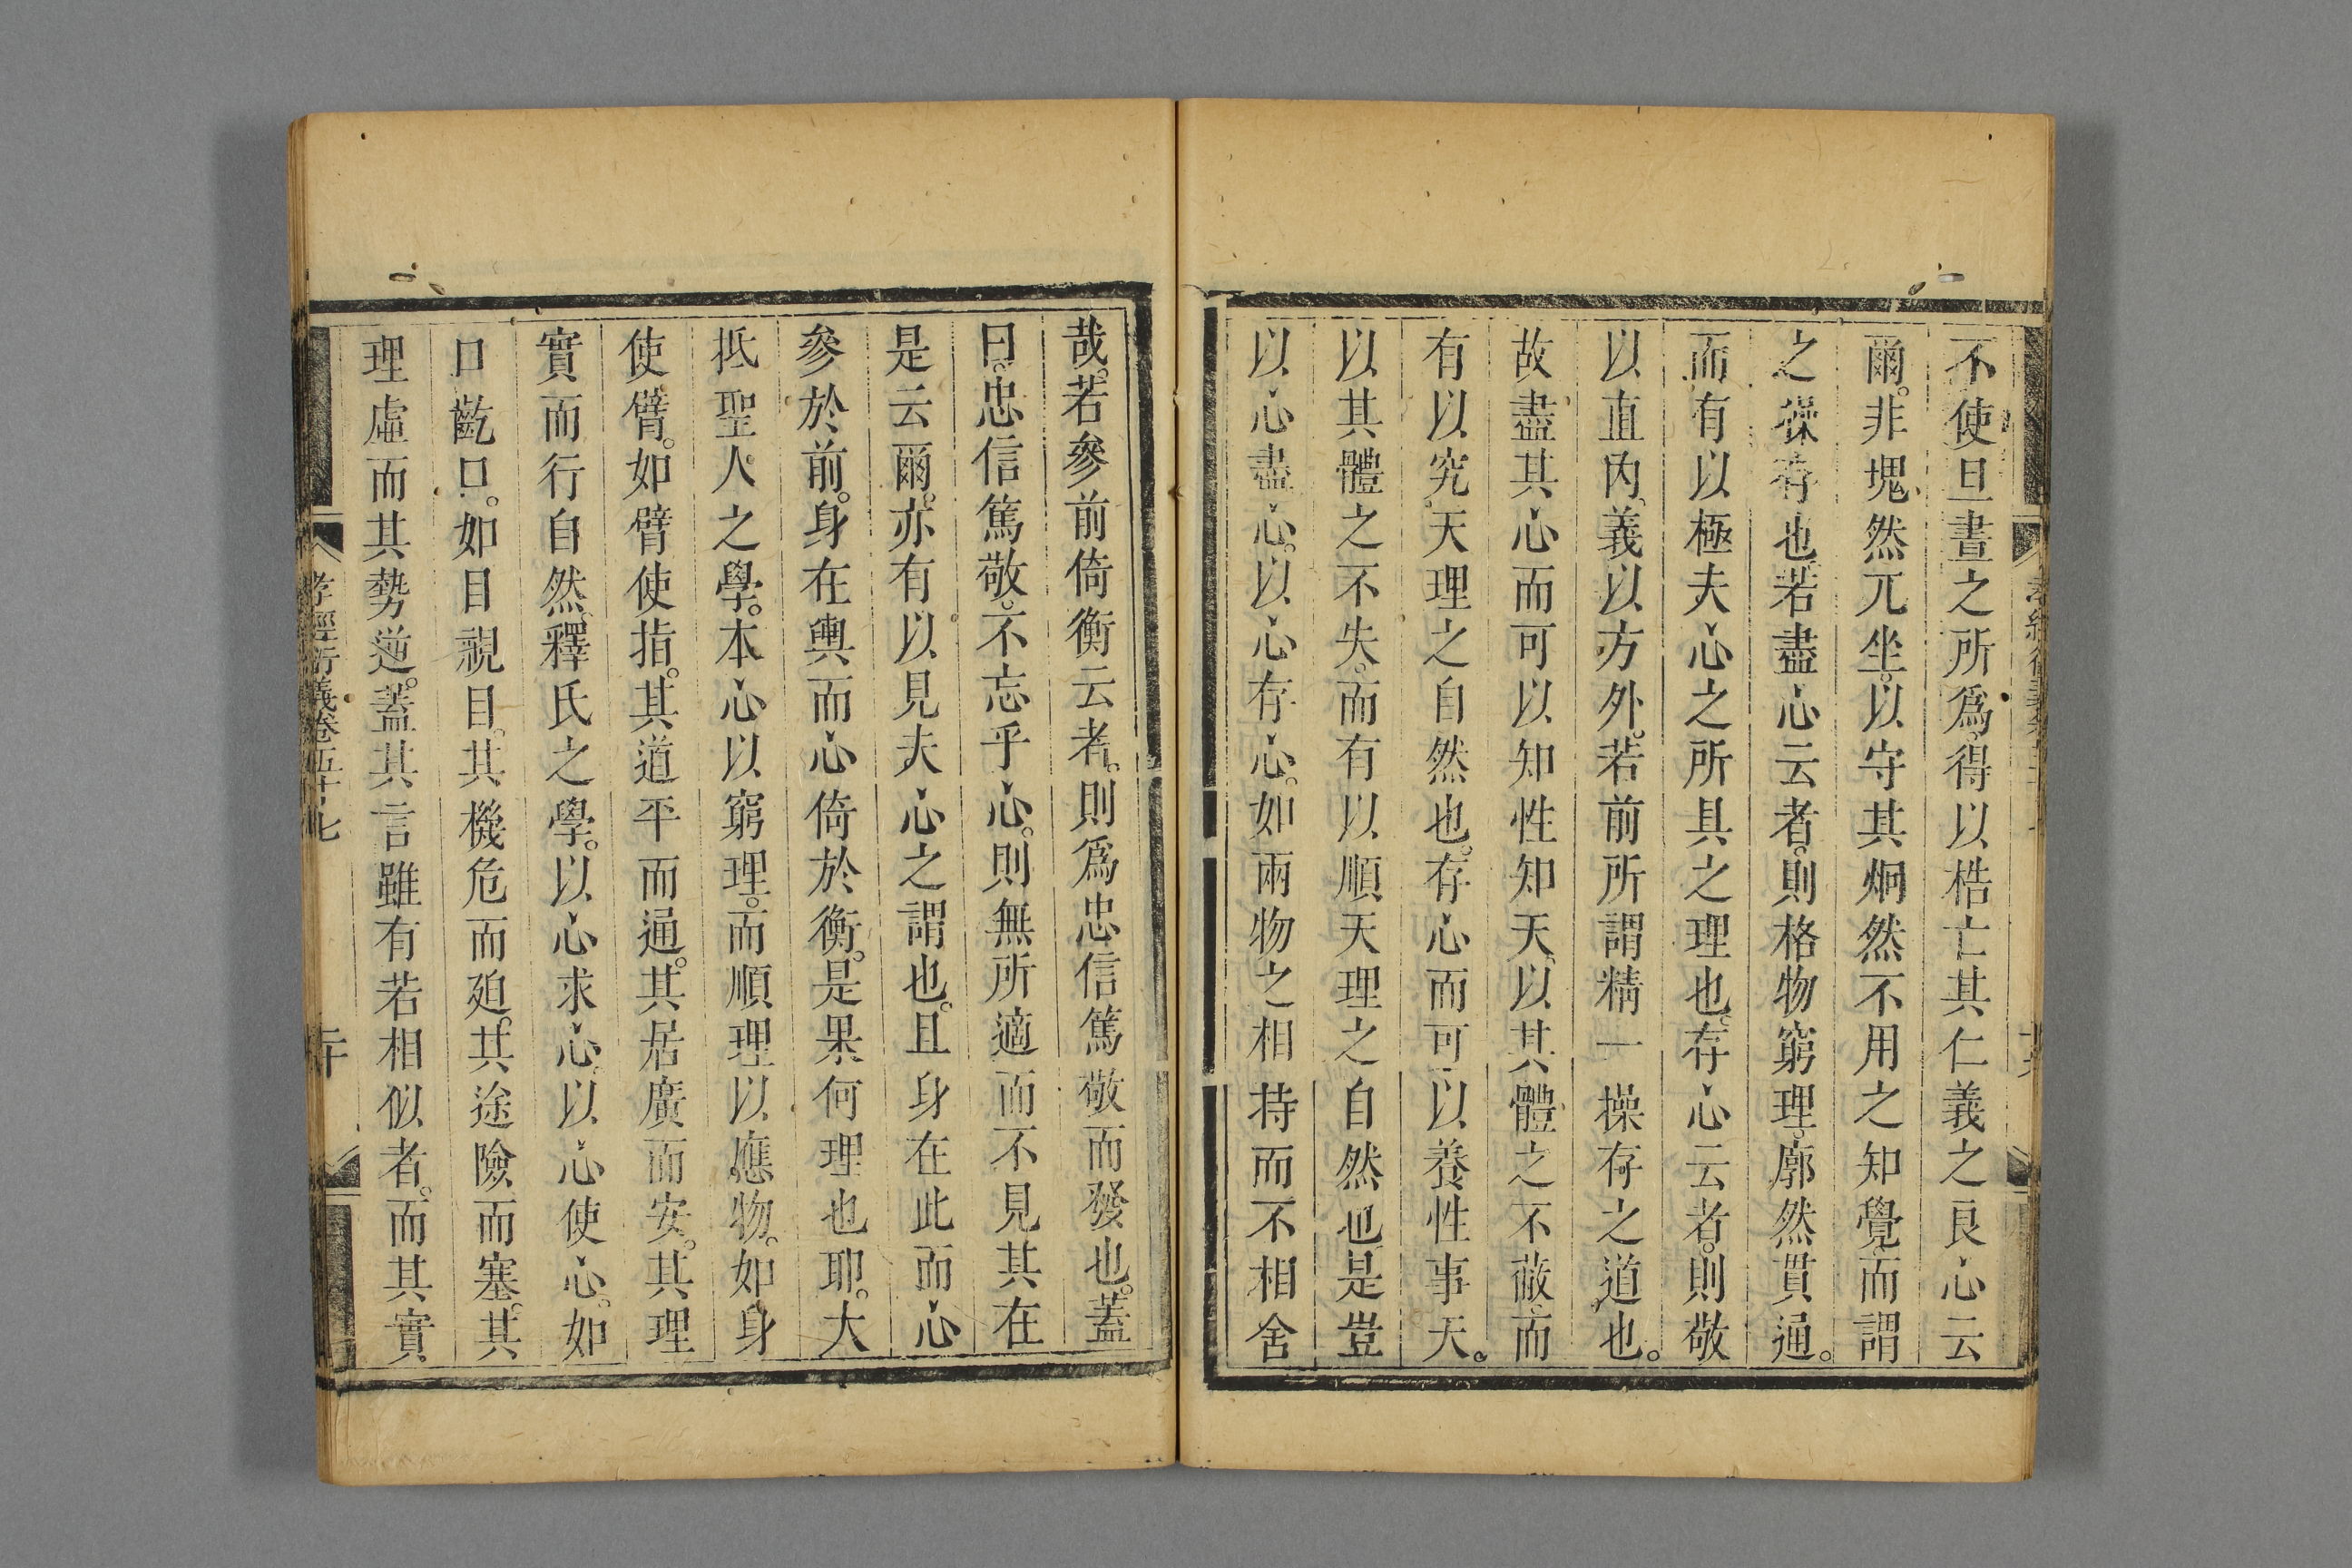 不使旦晝之所爲得以梏亡其仁義之良心云
爾。非塊然兀坐。以守其炯然不用之知覺。而謂
之操存也。若盡心云者。則格物窮理。廓然貫通。
而有以極夫心之所具之理也。存心云者。則敬
以直內。義以方外。若前所謂精一操存之道也。
故盡其心而可以知性知天。以其體之不蔽。而
有以究。天理之自然也。存心而可以養性事天。
以其體之不失。而有以順天理之自然也。是豈
以心盡心。以心存心。如兩物之相持而不相舍
哉。若參前倚衡云者。則爲忠信篤敬而發也。蓋
曰。忠信篤敬。不忘乎心。則無所適而不見其在
是云爾。亦有以見夫心之謂也。且身在此而心
參於前。身在輿而心倚於衡。是果何理也耶。大
抵聖人之學。本心以窮理。而順理以應物。如身
使臂。如臂使指。其道平而通。其居廣而安。其理
實而行自然。釋氏之學。以心求心。以心使心。如
口齕口。如目視目。其機危而廹。其途險而塞。其
理虛而其勢逆。蓋其言雖有若相似者。而其實
孝經衍義卷五十七
二十